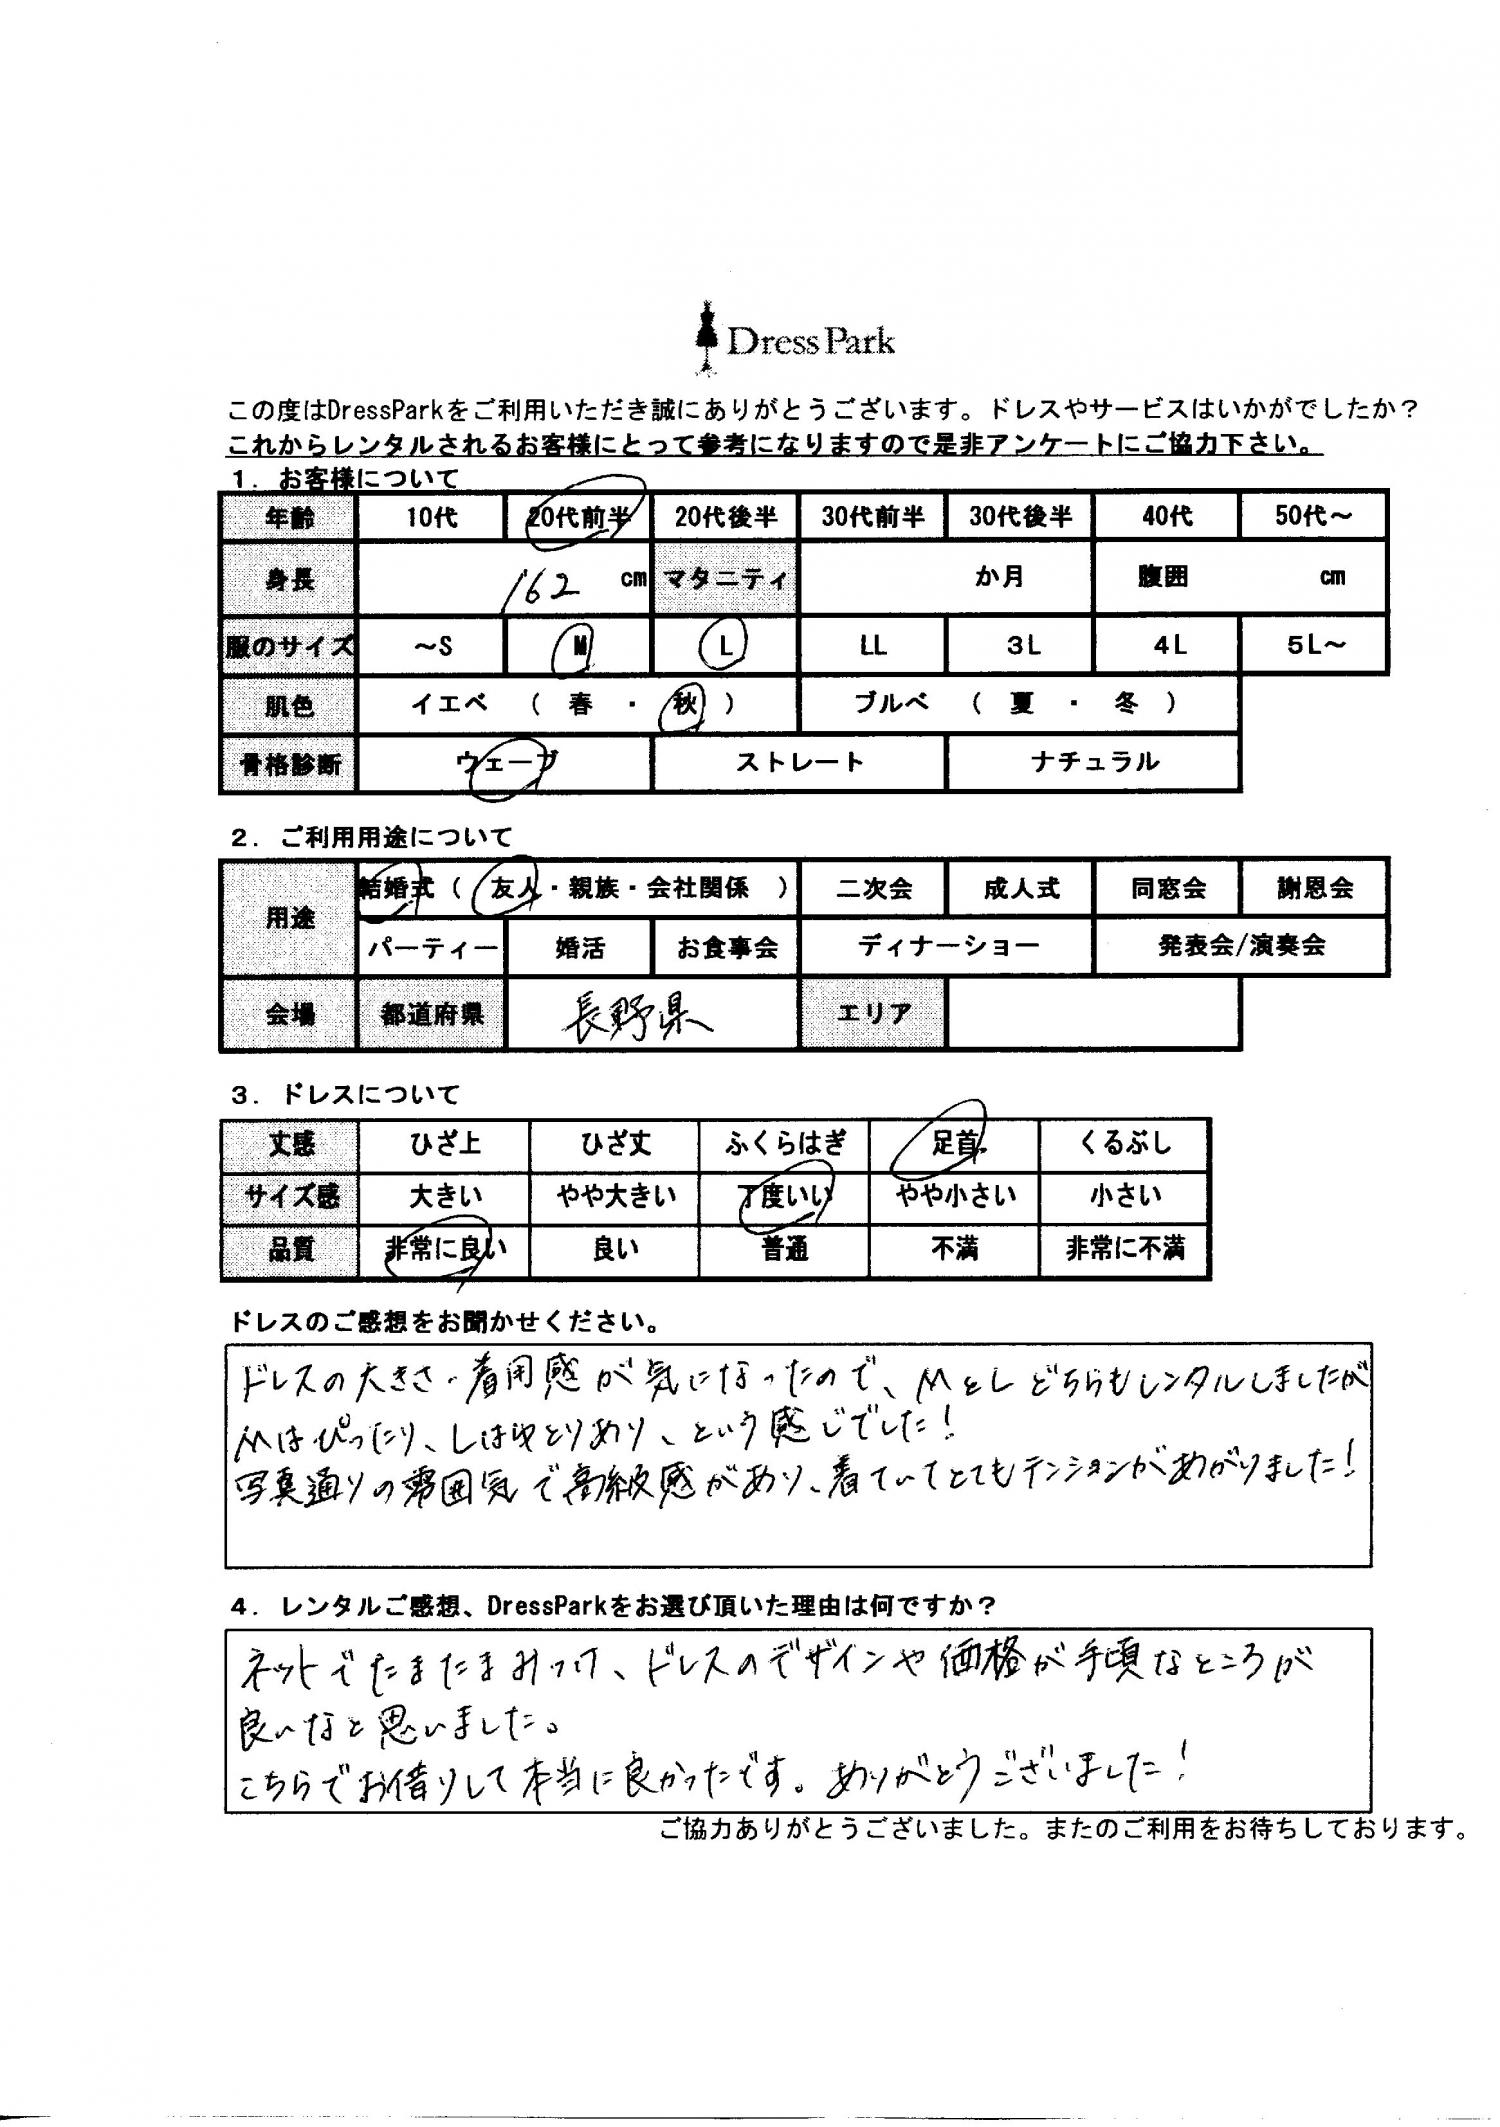 Dress Park
この度はDressParkをご利用いただき誠にありがとうございます。ドレスやサービスはいかがでしたか？
これからレンタルされるお客様にとって参考になりますので是非アンケートにご協力下さい。
1．お客様について
年齢 10代 20代前半 20代後半 30代前半 30代後半 40代 50代～
身長 162 cm マタニティ か月 腹囲 cm
服のサイズ ～S M L LL 3L 4L 5L～
肌色 イエベ （ 春 ・ 秋 ） ブルベ （ 夏 ・ 冬 ）
骨格診断 ウェーブ ストレート ナチュラル
2．ご利用用途について
用途 結婚式（ 友人・親族・会社関係 ） 二次会 成人式 同窓会 謝恩会
パーティー 婚活 お食事会 ディナーショー 発表会/演奏会
会場 都道府県 長野県 エリア
3．ドレスについて
丈感 ひざ上 ひざ丈 ふくらはぎ 足首 くるぶし
サイズ感 大きい やや大きい 丁度いい やや小さい 小さい
品質 非常に良い 良い 普通 不満 非常に不満
ドレスのご感想をお聞かせください。
ドレスの大きさ・着用感が気になったので、MとLどちらもレンタルしましたが
Mはぴったり、Lはゆとりあり、という感じでした！
写真通りの雰囲気で高級感があり、着ていてとてもテンションがあがりました！
4．レンタルご感想、DressParkをお選び頂いた理由は何ですか？
ネットでたまたまみつけ、ドレスのデザインや価格が手頃なところが
良いなと思いました。
こちらでお借りして本当に良かったです。ありがとうございました！
ご協力ありがとうございました。またのご利用をお待ちしております。